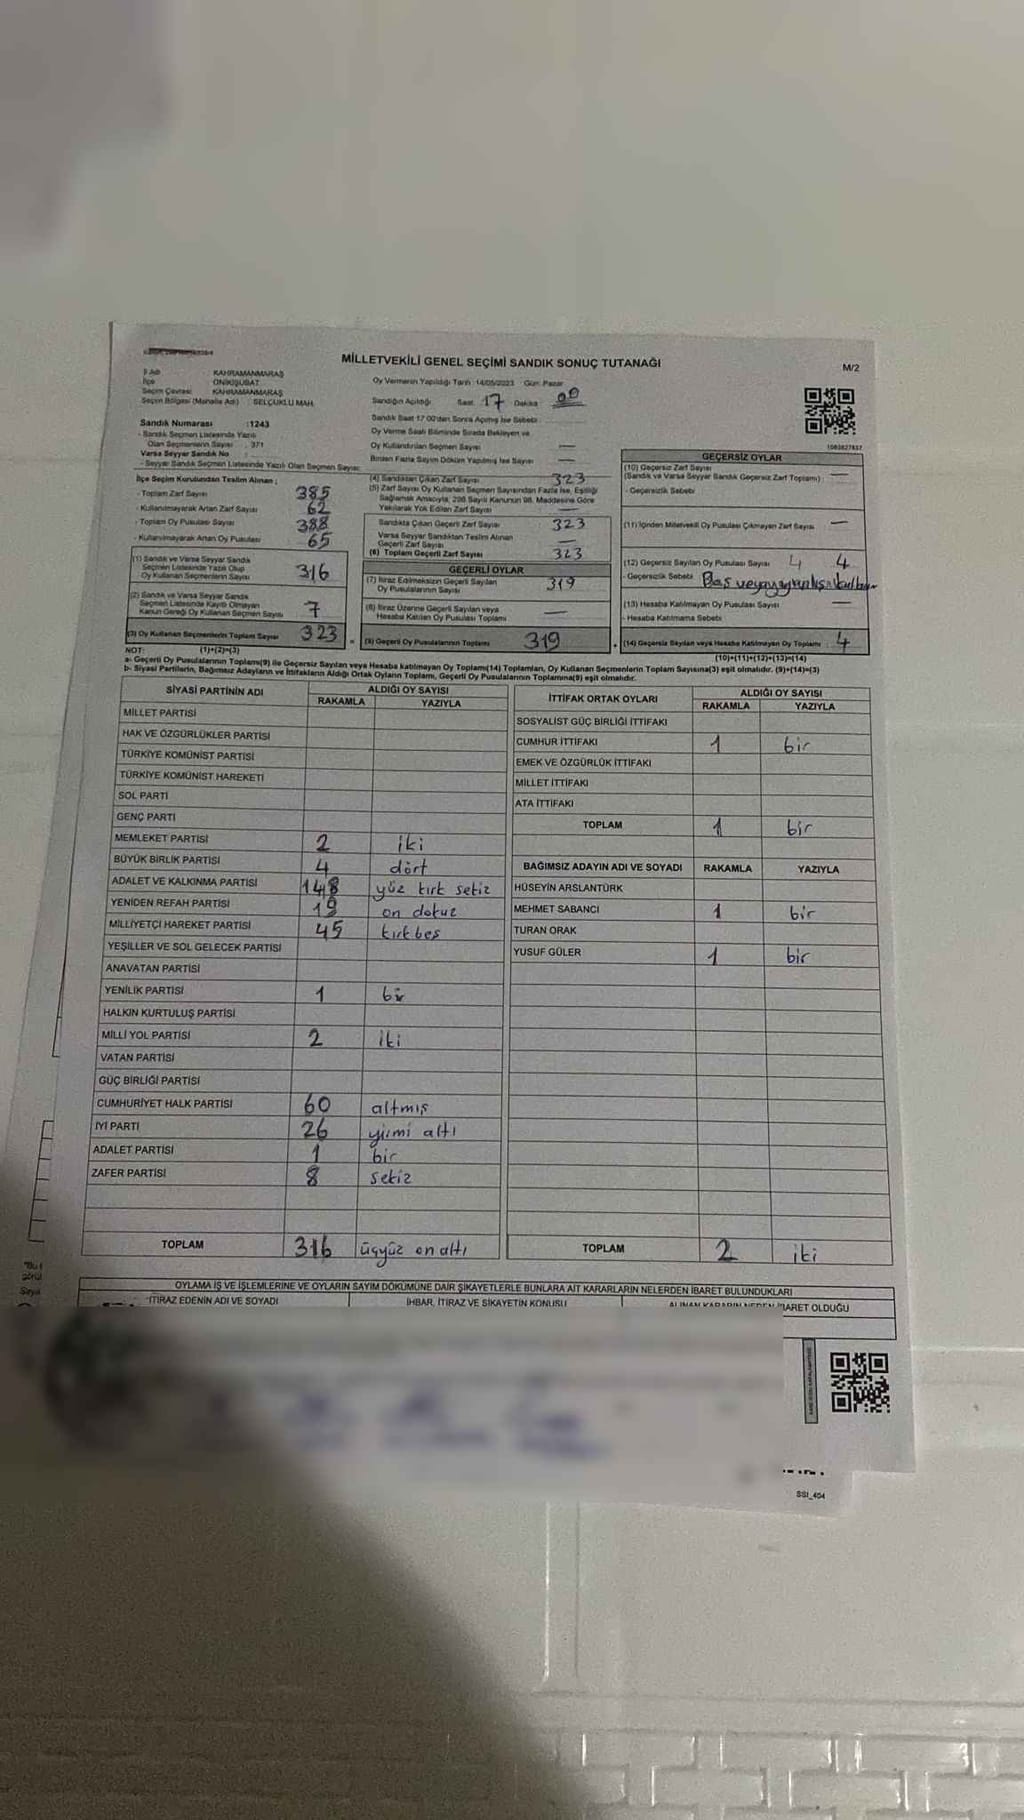 MİLLETVEKİLİ GENEL SEÇİMİ SANDIK SONUÇ TUTANAĞI
M/2
İl Adı KAHRAMANMARAŞ
İlçe ONİKİŞUBAT
Seçim Çevresi KAHRAMANMARAŞ
Seçim Bölgesi (Mahalle Adı) : SELÇUKLU MAH.
Oy Vermenin Yapıldığı Tarih : 14/05/2023 Gün: Pazar
Sandığın Açıldığı Saat 17 Dakika 00
Sandık Saat 17:00'den Sonra Açılmış İse Sebebi
Oy Verme Saati Bitiminde Sırada Bekleyen ve
Oy Kullandırılan Seçmen Sayısı —
Birden Fazla Sayım Döküm Yapılmış İse Sayısı —
Sandık Numarası :1243
- Sandık Seçmen Listesinde Yazılı
Olan Seçmenlerin Sayısı : 371
Varsa Seyyar Sandık No :
- Seyyar Sandık Seçmen Listesinde Yazılı Olan Seçmen Sayısı:
İlçe Seçim Kurulundan Teslim Alınan ;
- Toplam Zarf Sayısı 385
- Kullanılmayarak Artan Zarf Sayısı 62
- Toplam Oy Pusulası Sayısı 388
- Kullanılmayarak Artan Oy Pusulası 65
(1) Sandık ve Varsa Seyyar Sandık
Seçmen Listesinde Yazılı Olup
Oy Kullanan Seçmenlerin Sayısı 316
(2) Sandık ve Varsa Seyyar Sandık
Seçmen Listesinde Kayıtlı Olmayan
Kanun Gereği Oy Kullanan Seçmen Sayısı 7
(3) Oy Kullanan Seçmenlerin Toplam Sayısı 323
(4) Sandıktan Çıkan Zarf Sayısı 323
(5) Zarf Sayısı Oy Kullanan Seçmen Sayısından Fazla İse, Eşitliği
Sağlamak Amacıyla, 298 Sayılı Kanunun 98. Maddesine Göre
Yakılarak Yok Edilen Zarf Sayısı
Sandıkta Çıkan Geçerli Zarf Sayısı 323
Varsa Seyyar Sandıktan Teslim Alınan
Geçerli Zarf Sayısı —
(6) Toplam Geçerli Zarf Sayısı 323
GEÇERLİ OYLAR
(7) İtiraz Edilmeksizin Geçerli Sayılan
Oy Pusulalarının Sayısı 319
(8) İtiraz Üzerine Geçerli Sayılan veya
Hesaba Katılan Oy Pusulaları Toplamı —
(9) Geçerli Oy Pusulalarının Toplamı 319
1083827837
GEÇERSİZ OYLAR
(10) Geçersiz Zarf Sayısı
(Sandık ve Varsa Seyyar Sandık Geçersiz Zarf Toplamı) : —
- Geçersizlik Sebebi
(11) İçinden Milletvekili Oy Pusulası Çıkmayan Zarf Sayısı —
(12) Geçersiz Sayılan Oy Pusulası Sayısı 4 4
- Geçersizlik Sebebi
(13) Hesaba Katılmayan Oy Pusulası Sayısı —
- Hesaba Katılmama Sebebi
(14) Geçersiz Sayılan veya Hesaba Katılmayan Oy Toplamı : 4
NOT: (1)+(2)=(3)
(10)+(11)+(12)+(13)=(14)
a- Geçerli Oy Pusulalarının Toplamı(9) ile Geçersiz Sayılan veya Hesaba katılmayan Oy Toplamı(14) Toplamları, Oy Kullanan Seçmenlerin Toplam Sayısına(3) eşit olmalıdır. (9)+(14)=(3)
b- Siyasi Partilerin, Bağımsız Adayların ve İttifakların Aldığı Ortak Oyların Toplamı, Geçerli Oy Pusulalarının Toplamına(9) eşit olmalıdır.
SİYASİ PARTİNİN ADI ALDIĞI OY SAYISI
RAKAMLA YAZIYLA
MİLLET PARTİSİ
HAK VE ÖZGÜRLÜKLER PARTİSİ
TÜRKİYE KOMÜNİST PARTİSİ
TÜRKİYE KOMÜNİST HAREKETİ
SOL PARTİ
GENÇ PARTİ
MEMLEKET PARTİSİ 2 iki
BÜYÜK BİRLİK PARTİSİ 4 dört
ADALET VE KALKINMA PARTİSİ 148 yüz kırk sekiz
YENİDEN REFAH PARTİSİ 19 on dokuz
MİLLİYETÇİ HAREKET PARTİSİ 45 kırk beş
YEŞİLLER VE SOL GELECEK PARTİSİ
ANAVATAN PARTİSİ
YENİLİK PARTİSİ 1 bir
HALKIN KURTULUŞ PARTİSİ
MİLLİ YOL PARTİSİ 2 iki
VATAN PARTİSİ
GÜÇ BİRLİĞİ PARTİSİ
CUMHURİYET HALK PARTİSİ 60 altmış
İYİ PARTİ 26 yirmi altı
ADALET PARTİSİ 1 bir
ZAFER PARTİSİ 8 sekiz
TOPLAM 316 üçyüz on altı
İTTİFAK ORTAK OYLARI ALDIĞI OY SAYISI
RAKAMLA YAZIYLA
SOSYALİST GÜÇ BİRLİĞİ İTTİFAKI
CUMHUR İTTİFAKI 1 bir
EMEK VE ÖZGÜRLÜK İTTİFAKI
MİLLET İTTİFAKI
ATA İTTİFAKI
TOPLAM 1 bir
BAĞIMSIZ ADAYIN ADI VE SOYADI RAKAMLA YAZIYLA
HÜSEYİN ARSLANTÜRK
MEHMET SABANCI 1 bir
TURAN ORAK
YUSUF GÜLER 1 bir
TOPLAM 2 iki
OYLAMA İŞ VE İŞLEMLERİNE VE OYLARIN SAYIM DÖKÜMÜNE DAİR ŞİKAYETLERLE BUNLARA AİT KARARLARIN NELERDEN İBARET BULUNDUKLARI
İTİRAZ EDENİN ADI VE SOYADI İHBAR, İTİRAZ VE ŞİKAYETİN KONUSU ALINAN KARARIN NEDEN İBARET OLDUĞU
SSI_404